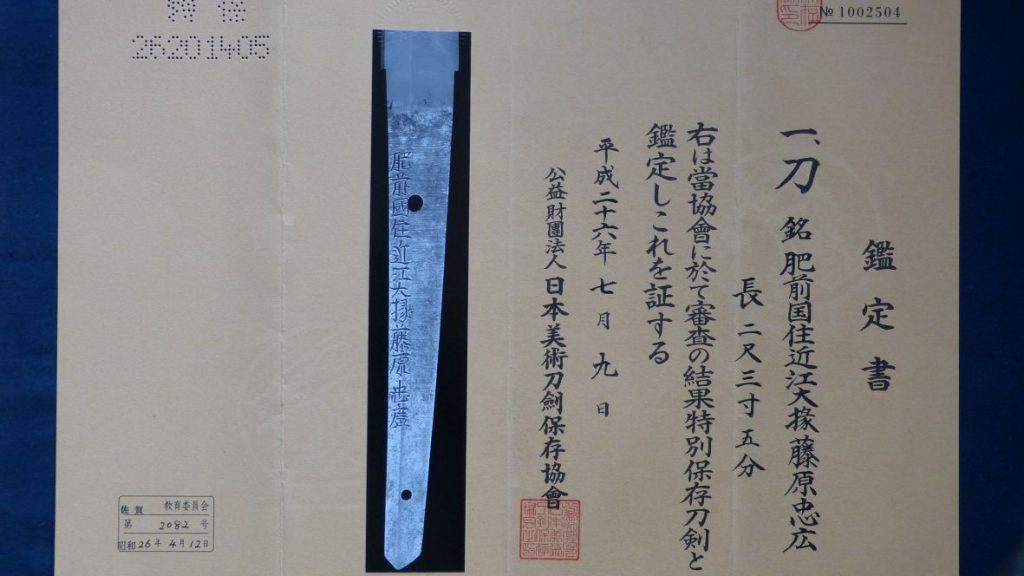 № 1002504
鑑定書
一、刀 銘 肥前国住近江大掾藤原忠広
長 二尺三寸五分
右は當協會に於て審査の結果特別保存刀剣と
鑑定しこれを証する
平成二十六年七月九日
公益財團法人日本美術刀劍保存協會
肥前國住近江大掾藤原忠廣
26201405
佐賀 教育委員会
第 2082 号
昭和26年4月12日